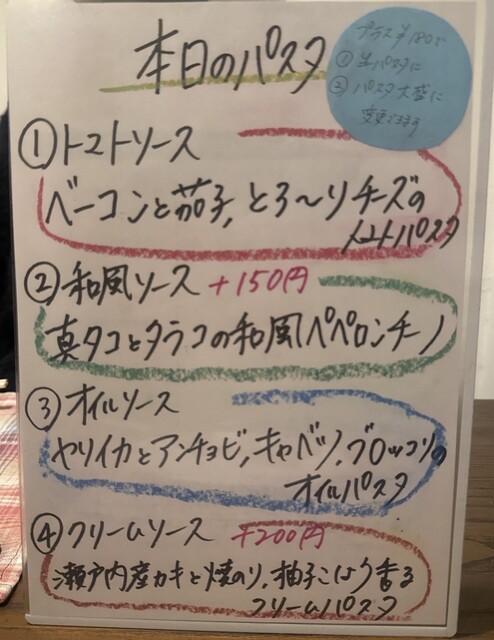 本日のパスタ
プラス¥180で
①生パスタに
②パスタ大盛に
変更できます
①トマトソース
ベーコンと茄子,とろ〜りチーズの
トマトパスタ
②和風ソース +150円
真タコとタラコの和風ペペロンチーノ
③オイルソース
ヤリイカとアンチョビ,キャベツ,ブロッコリの
オイルパスタ
④クリームソース +200円
瀬戸内産カキと焼のり,柚子こしょう香る
クリームパスタ